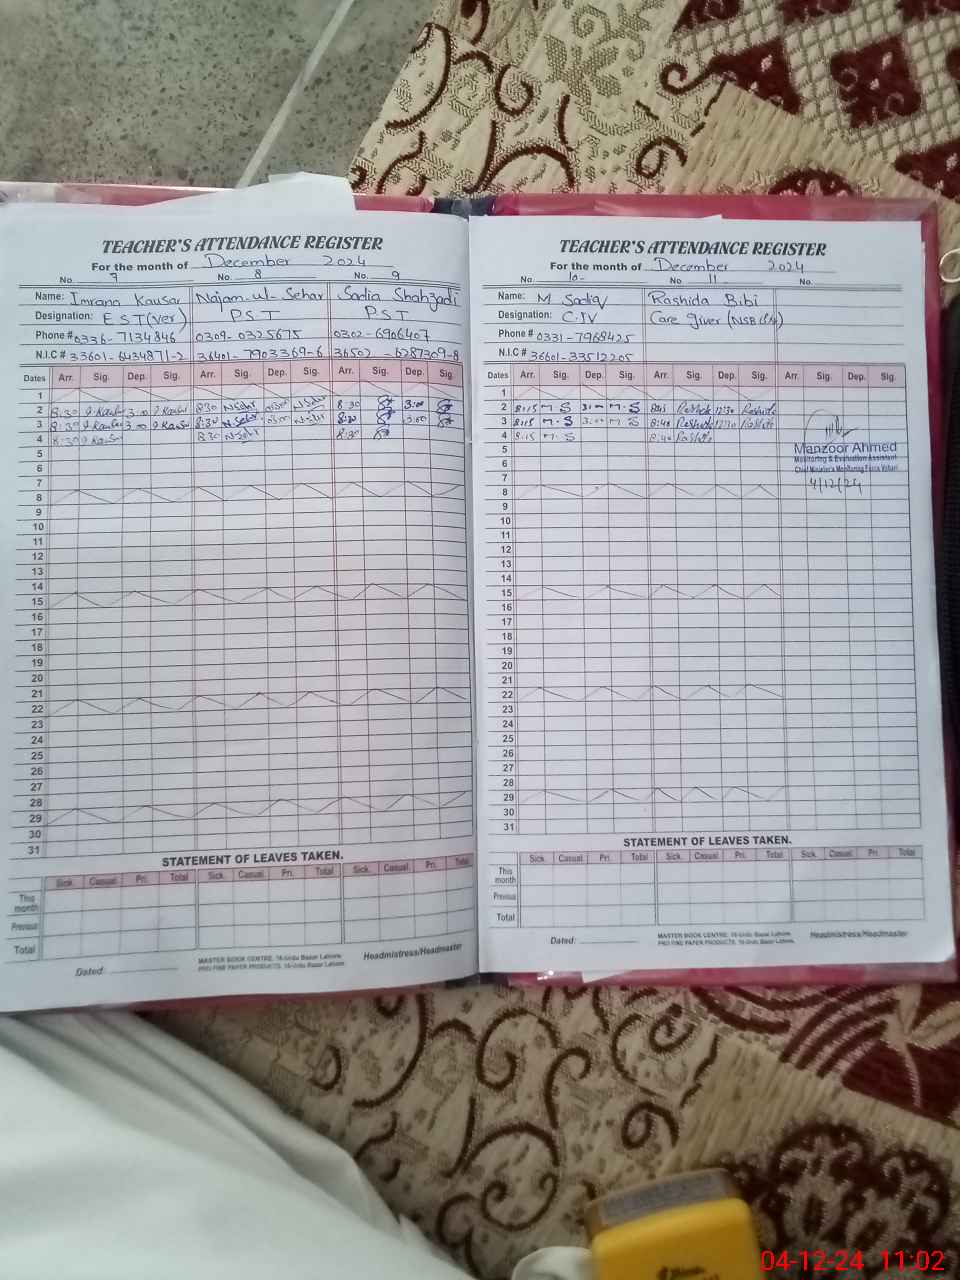 TEACHER'S ATTENDANCE REGISTER
For the month of December 2024
No. 7 No. 8 No. 9
Name: Imrana Kausar Najam-ul-Sehar Sadia Shahzadi
Designation: EST(ver) P.S.T P.S.T
Phone # 0336-7134846 0309-0325675 0302-6906407
N.I.C # 33601-6434871-2 36401-7903369-6 36502-6287309-8
Dates Arr. Sig. Dep. Sig. Arr. Sig. Dep. Sig. Arr. Sig. Dep. Sig.
1
2 8:30 I.Kausar 3:00 I.Kausar 8:30 N.Sehr N.Sehr 8:30 3:00
3 8:30 I.Kausar 3:00 I.Kausar 8:30 N.Sehr N.Sehr 8:30 3:00
4 8:30 I.Kausar 8:30 N.Sehr 8:30
5
6
7
8
9
10
11
12
13
14
15
16
17
18
19
20
21
22
23
24
25
26
27
28
29
30
31
STATEMENT OF LEAVES TAKEN.
Sick. Casual Pri. Total Sick. Casual Pri. Total Sick. Casual Pri. Total
This month
Previous
Total
Dated:
MASTER BOOK CENTRE. 16-Urdu Bazar Lahore.
PRO FINE PAPER PRODUCTS. 16-Urdu Bazar Lahore.
Headmistress/Headmaster
TEACHER'S ATTENDANCE REGISTER
For the month of December 2024
No. 10 No. 11 No.
Name: M Sadiq Rashida Bibi
Designation: C.IV Care giver (NSB)
Phone # 0331-7968425
N.I.C # 36601-33512205
Dates Arr. Sig. Dep. Sig. Arr. Sig. Dep. Sig. Arr. Sig. Dep. Sig.
1
2 8:15 M.S 3:00 M.S 8:45 Rashida 12:30 Rashida
3 8:15 M.S 3:00 M.S 8:40 Rashida 12:30 Rashida
4 8:15 M.S 8:40 Rashida
5
6
7
8
9
10
11
12
13
14
15
16
17
18
19
20
21
22
23
24
25
26
27
28
29
30
31
Manzoor Ahmed
Monitoring & Evaluation Assistant
Chief Minister's Monitoring Force Vehari
4/12/24
STATEMENT OF LEAVES TAKEN.
Sick. Casual Pri. Total Sick. Casual Pri. Total Sick. Casual Pri. Total
This month
Previous
Total
Dated:
MASTER BOOK CENTRE. 16-Urdu Bazar Lahore.
PRO FINE PAPER PRODUCTS. 16-Urdu Bazar Lahore.
Headmistress/Headmaster
04-12-24 11:02